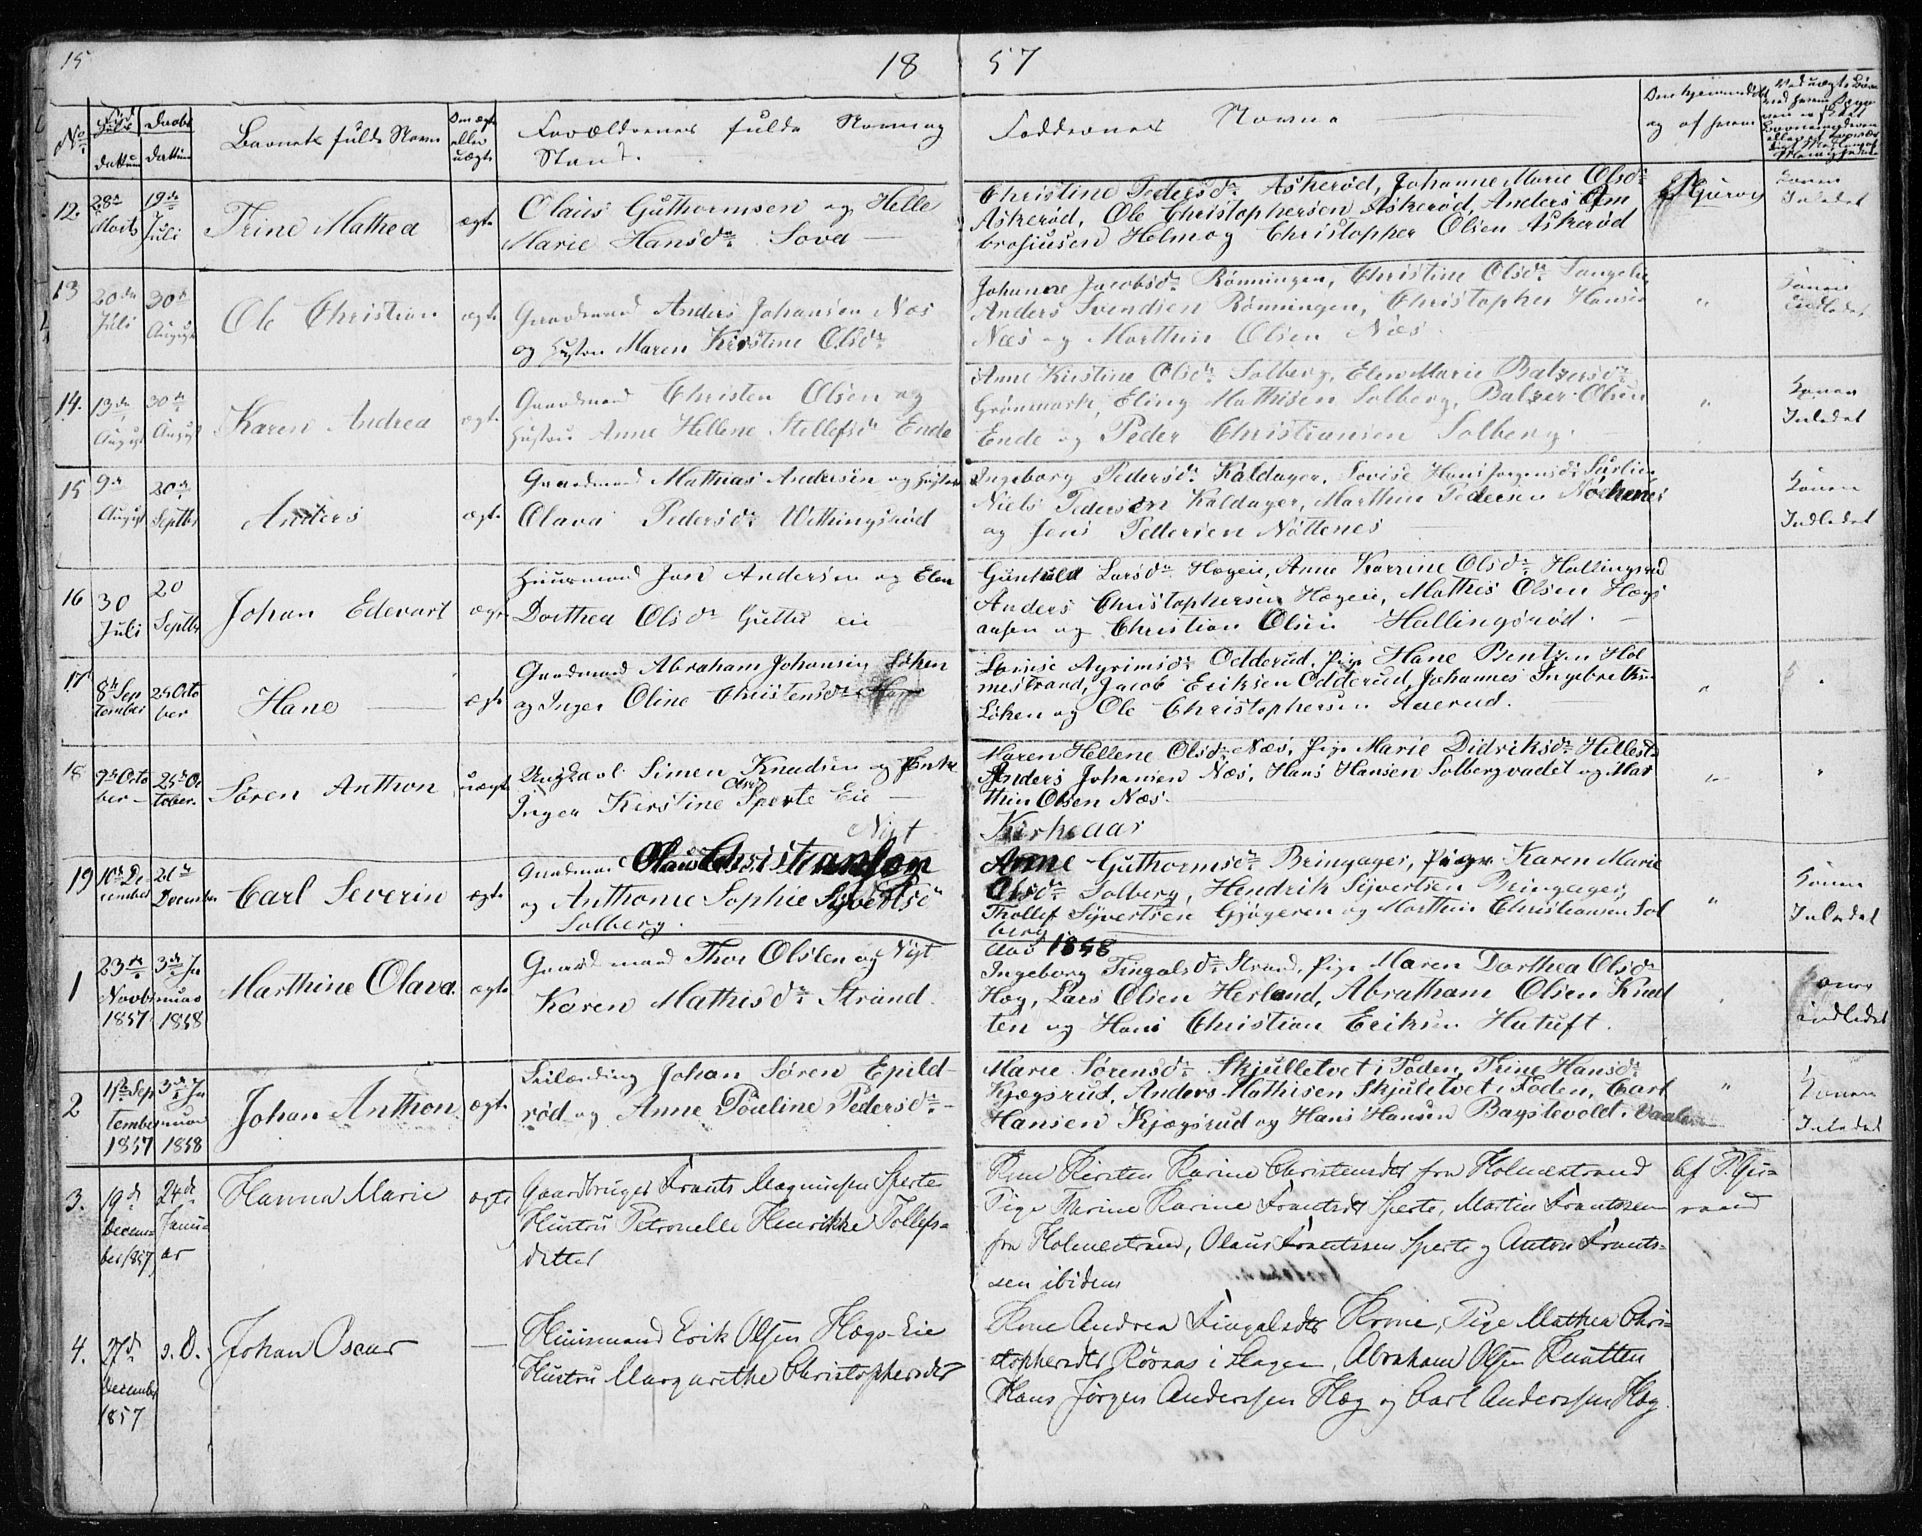 15
18 57
No
Født Dattum
Daabs Dattum
Barnets fulde Navn
Om ægte eller uægte
Forældrenes fulde Navn og
Stand.
Faddernes Navne
Om hjemmedøbt
og af hvem
12.
28de Marts
19de Juli
Trine Mathea
ægte
Olaus Guthormsen og Helle
Marie Hansdr Sova
Christine Pedersdr Askerød, Johanne Marie Olsdr
Askerød, Ole Christophersen Askerød, Anders Am
brosiusen Helm og Christopher Olsen Askerød
Konen
Inledet
13
20de Juli
30te August
Ole Christian
ægte
Gaardmand Anders Johansen Næs
og Hustru Maren Kirstine Olsdr
Johanne Jacobsdr Rønningen, Christine Olsdr
Anders Svendsen Rønningen, Christopher Hansen
Næs og Marthin Olsen Næs
"
Konen
indledet
14.
13de August
30de August
Karen Andrea
ægte
Gaardmand Christen Olsen og
Hustru Anne Hellene Stellefsdr Ende
Anne Kirstine Olsdr Solberg, Elen Marie Balzersdr
Grønmark, Eling Mathisen Solberg, Balzer Olsen
Ende og Peder Christiansen Solberg.
"
Konen
Inledet
15
9de August
20de Septbr
Anders
ægte
Gaardmand Mathias Andersen og Hustru
Olava Pedersdr Wethingsrød
Ingeborg Pedersdr Kaldager, Lovise Hansjørgensdr
Niels Pedersen Kaldager, Marthin Pedersen
og Jens Pettersen Nøttenes
Konen
Indledet
16
30 Juli
20 Septbr
Johan Edevart
ægte
Huusmand Jon Andersen og Elen
Dorthea Olsdr eie
Gunhild Larsdr Hægeie, Anne Karrine Olsdr Hallingsrød
Anders Christophersen Hægeie, Mathis Olsen Hægs
aasen og Christian Olsen Hallingsrød.
17
8de Sep
tember
25 Octo
ber
Hane
ægte
Gaardmand Abraham Johansen Løken
og Inger Oline Christensdr
Lovise Agrimsdr Odderud, Pige Hane Bentzen Hol
mestrand, Jacob Eriksen Odderud, Johannes Ingebretsen
Løken og Ole Christophersen Aaerud.
"
"
18
9de Octo
ber
25de Oc
tober.
Søren Anthon
uægte
Ungkarl Simen Knudsen og Enke
Inger Kirstine Olsdr Sperte Eie
Maren Hellene Olsdr Næs, Pige Marie Didriksdr
Anders Johansen Næs, Hans Hansen Solbergvadet og Mar
thin Olsen Næs.
"
"
Nyt
Kirkeaar
19
10de De
cember
26de
December
Carl Severin
ægte
Gaardmand Olaus Christiansen
og Anthone Sophie Syvertsd
Solberg.
Anne Guthormsdr Bringager, Pige Karen Marie
Olsdr Solberg, Hendrik Syvertsen Bringager,
Thollef Syvertsen Gjøgeren og Marthin Christiansen Sol
berg
"
Konen
Inledet
Aar 1858
1
23de
Novbr
1857
3de Ja
nuar
1858
Marthine Olava.
ægte
Gaardmand Thor Olsen og
Karen Mathisdr Strand.
Ingeborg Fingalsdr Strand, Pige Maren Dorthea Olsdr
Hæg, Lars Olsen Herland, Abraham Olsen Knat
ten og Hans Christian Eriksen Hatuft.
Konen
indledet
2
Sep
tember
1857
3de Ja
nuar
1858
Johan Anthon
ægte
Johan Søren Epild-
rød og Anne Pouline Pedersdr
Marie Sørensdr Skjulletvet i Foden, Trine Hansdr
Kjægsrud, Anders Mathisen Skjuletvet i Foden, Carl
Hansen Kjægsrud og Hans Hansen Bagstevolt.
"
Konen
Inledet
3.
19de
Decem-
ber 1857
24de
Janu-
ar
Hanna Marie
ægte
Gaardbruger Frants Magnussen Sperte
Hustru Petronelle Henrikke Tollefs-
datter
Kone Kirsten Karine Christensdtr fra Holmestrand
Pige Karine Karine Frantsdtr Sperte, Martin Frantssen
fra Holmestrand, Olaus Frantssen Sperte og Anton Frants-
sen ibidem
4.
27de
December
1857
s. D.
Johan Oscar
—
Huusmand Erik Olsen Hægs-Eie
Hustru Margarethe Christophersdtr
Kone Andrea Fingalsdtr Horne, Pige Mathea Chri-
stophersdtr Rørnas i Hagen, Abraham Olsen Knatten
Hans Jørgen Anderssen Hæg og Carl Anderssen Hæg.